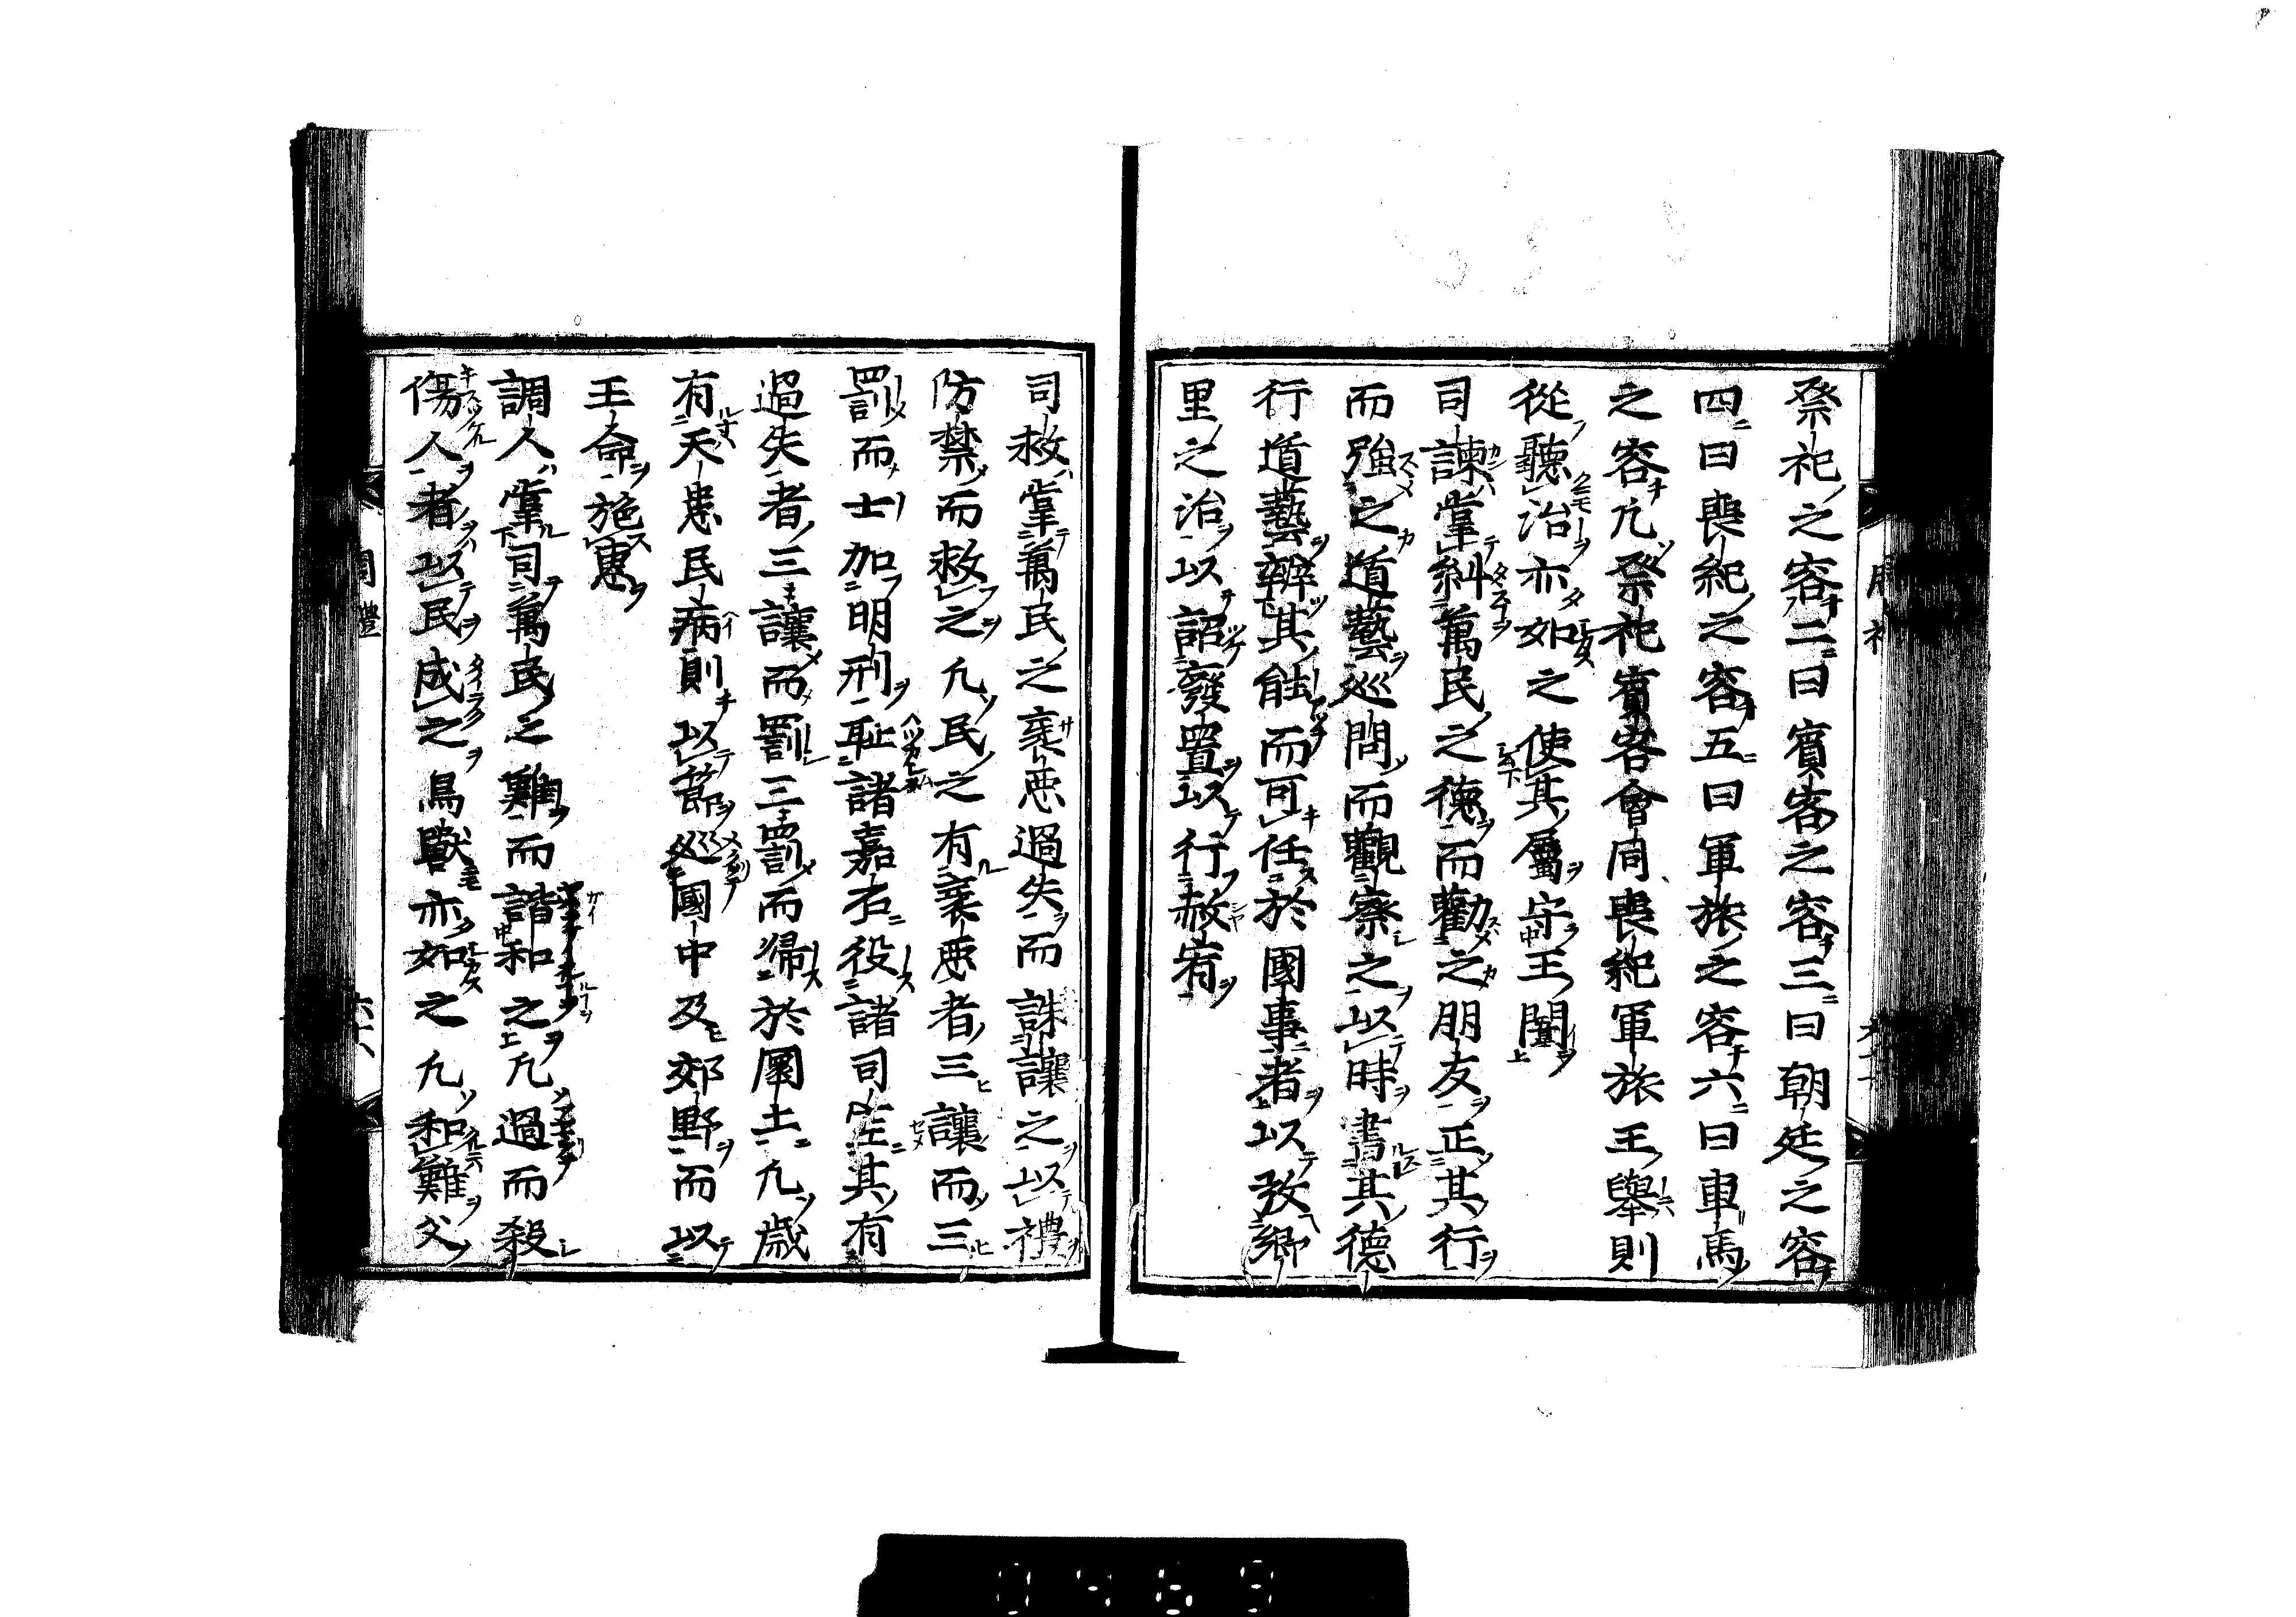 祭祀之容二曰賓客之容三曰朝廷之容
四曰喪紀之容五曰軍旅之容六曰車馬
之容凢祭祀賓客會同喪紀軍旅王舉則
從聽治亦如之使其屬守王闈
司諫掌糾萬民之德而勸之朋友正其行
而強之道藝巡問而觀察之以時書其德
行道藝辨其能而可任於國事者以攷鄉
里之治以詔廢置以行赦宥
司救掌萬民之衺惡過失而誅讓之以禮
防禁而救之凢民之有衺惡者三讓而三
罰而士加明刑恥諸嘉石役諸司空其有
過失者三讓而罰三罰而歸於圜土凢歲
有天患民病則以節巡國中及郊野而以
王命施惠
調人掌司萬民之難而諧和之凢過而殺
傷人者以民成之鳥獸亦如之凢和難父
周禮